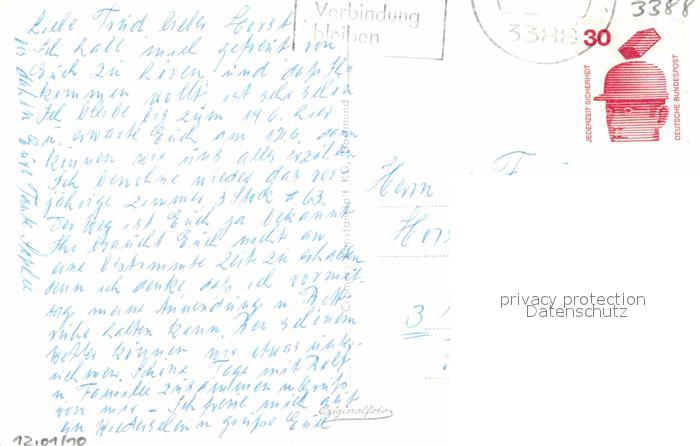 Liebe Trud, lieber Horst
Ich habe mich gefreut von
Euch zu hören, und daß Ihr
kommen wollt ist sehr schön
Ich bleibe bis zum 19.6. hier
u. erwarte Euch am 12.6. dann
können wir uns alles erzählen
Ich bewohne wieder das vor-
jährige Zimmer, 3 Stock # 63.
Der Weg ist Euch ja bekannt
Ihr braucht Euch nicht an
eine bestimmte Zeit zu erhalten
denn ich denke daß ich vormit-
tag meine Anwendung u. Bett-
ruhe halten kann. Bei schönem
Wetter können wir etwas unter-
nehmen. Schöne Tage mit Rolf
u. Familie zusammen u. Gruß
von mir – Ich freue mich auf
ein Wiedersehen u. grüße Euch
Eure Tante
Verbindung
bleiben
3388
3388
30
JEDERZEIT SICHERHEIT
DEUTSCHE BUNDESPOST
Herrn
Hors
3
privacy protection
Datenschutz
Originalfoto
12.01/10